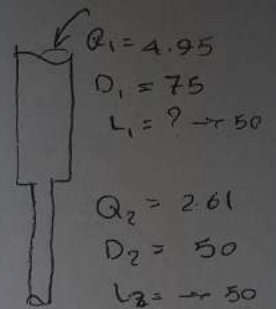 Q₁ = 4.95
D₁ = 75
L₁ = ? → 50
Q₂ = 2.61
D₂ = 50
L₂ = → 50